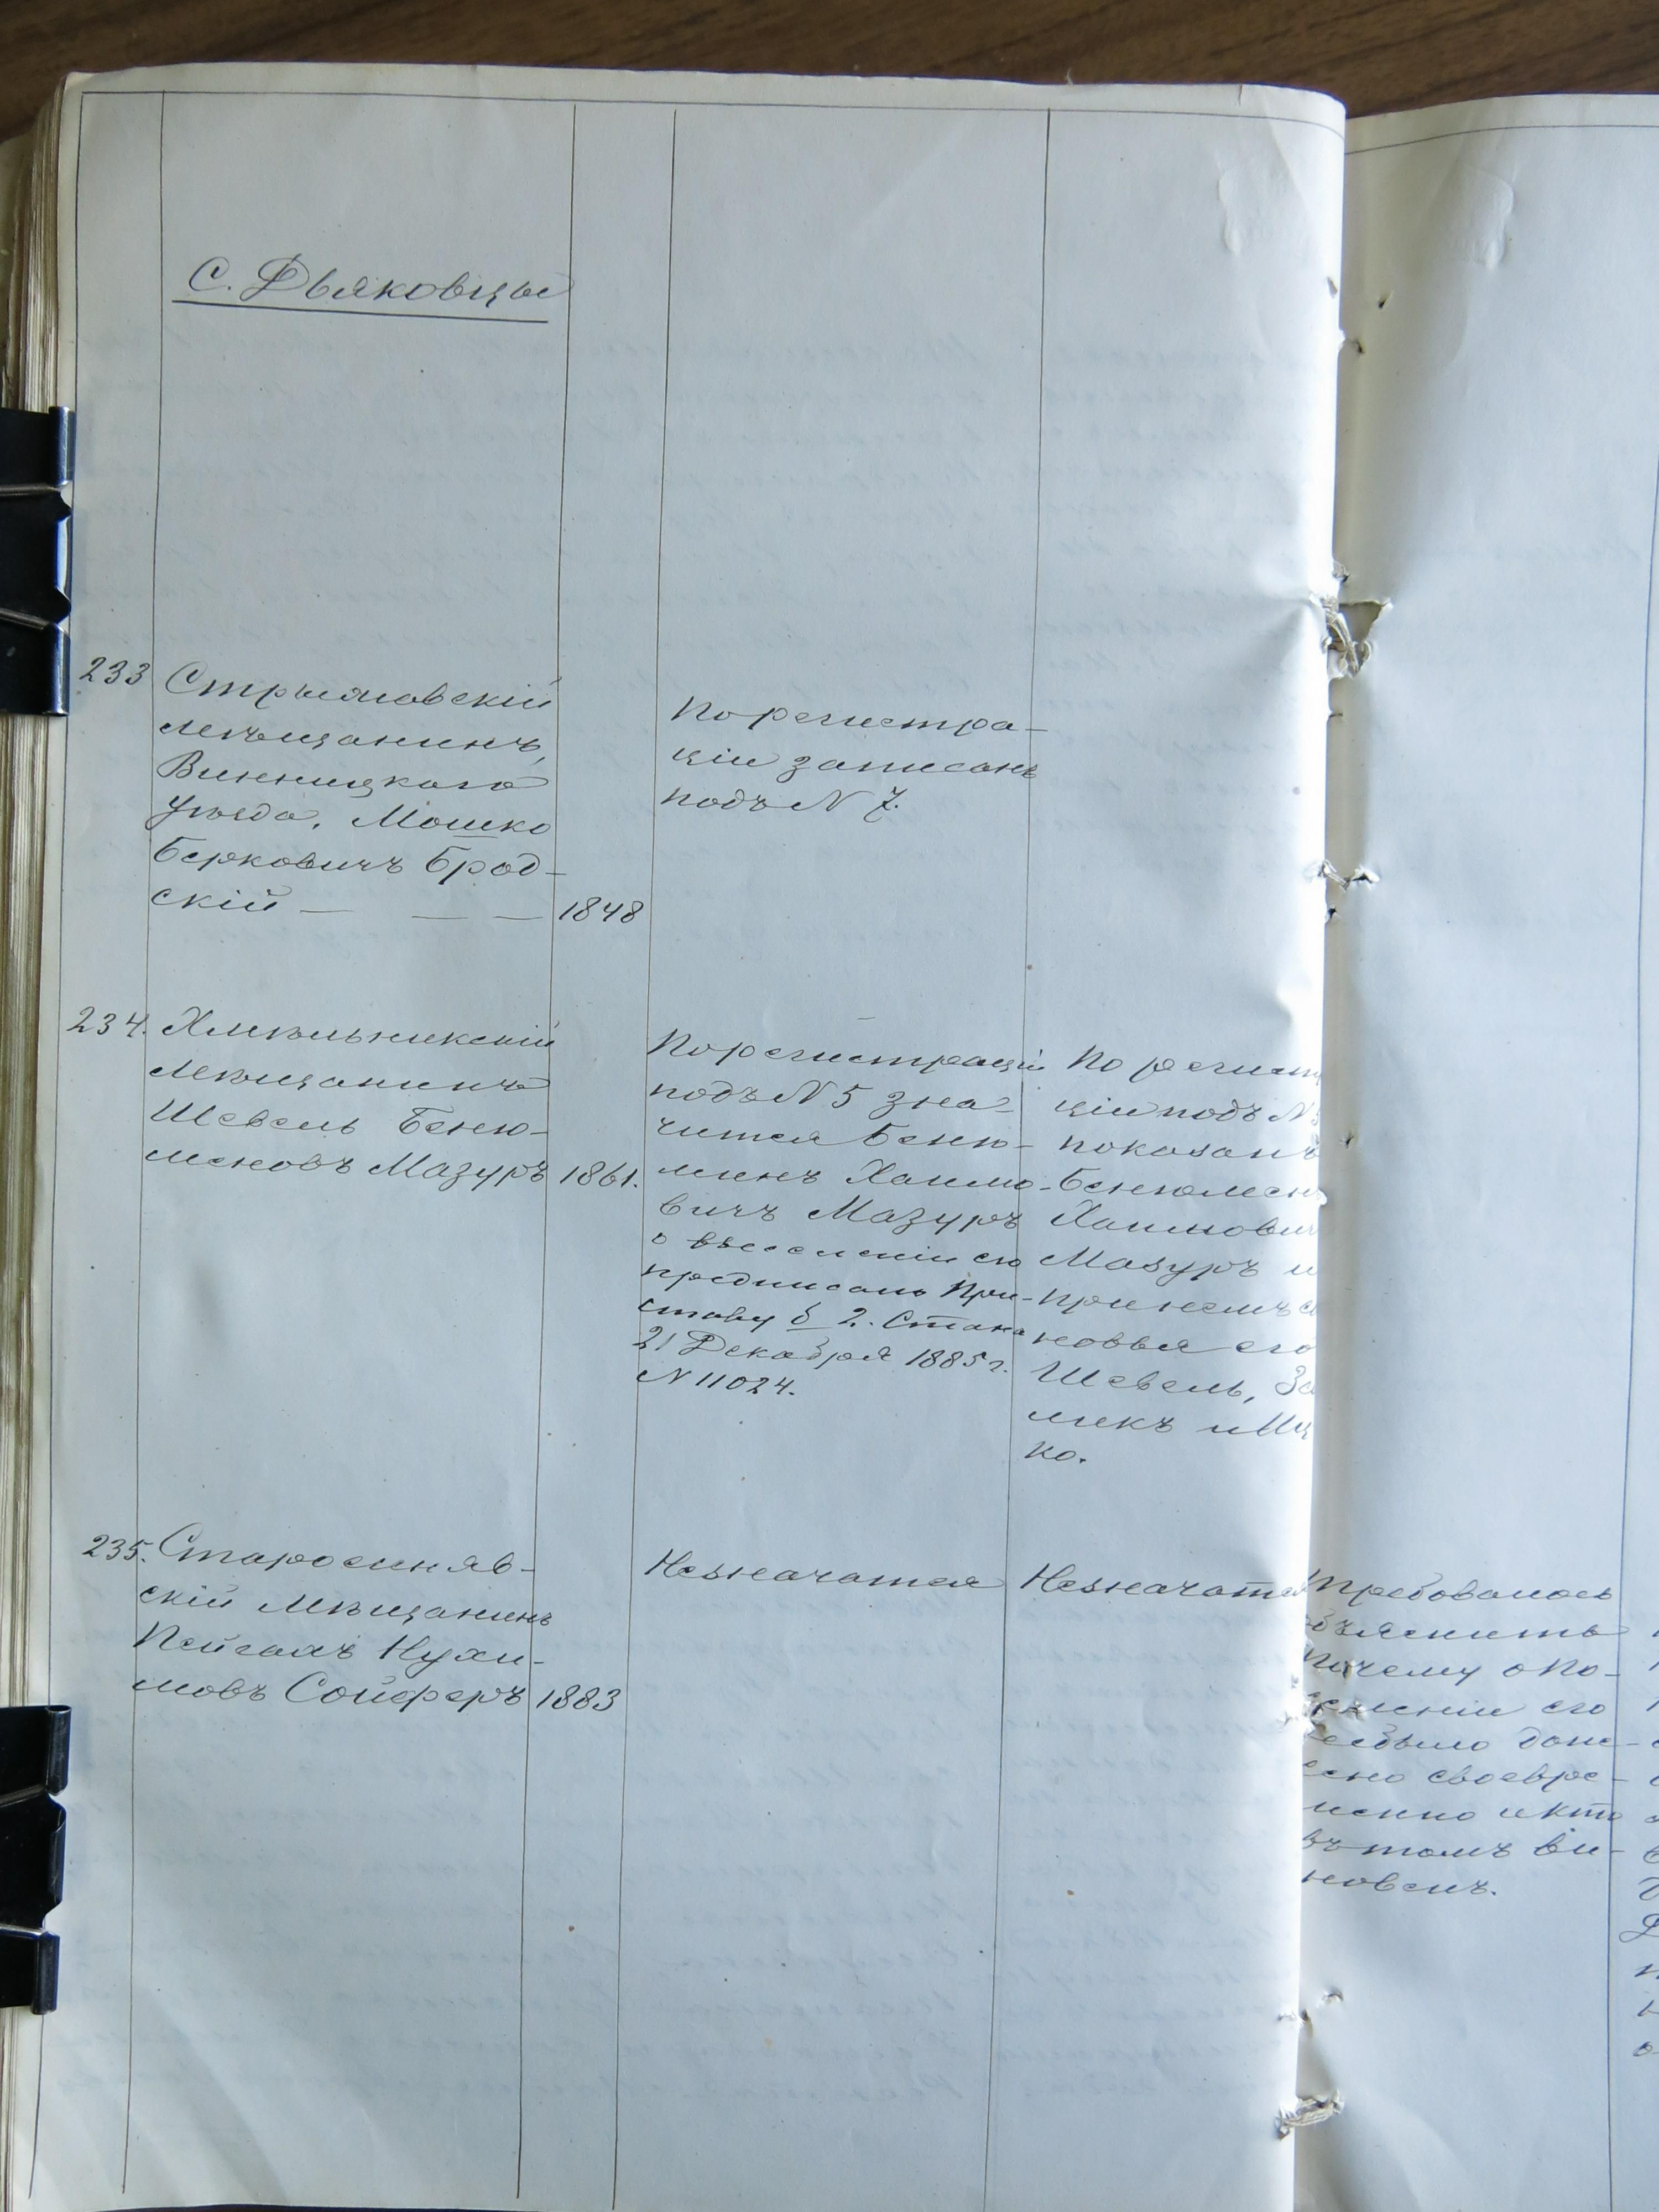 С. Дьяковцы
233 Стрыжавскій
мѣщанинъ,
Винницкаго
уѣзда, Мошко
Берковичъ Брод-
скій — — — 1848
По регистра-
ціи записанъ
подъ N 7.
234. Хмѣльникскій
мѣщанинъ
Шевель Беню-
меновъ Мазуръ 1861.
По регистраціи
подъ N 5 зна-
чится Беню-
минъ Хаимо-
вичъ Мазуръ
о выселеніи его
предписано При-
ставу 2. Стана
21 Декабря 1885 г.
N 11024.
По регист
ціи подъ N 5
показанъ
Бенюменъ
Хаимович
Мазуръ и
при немъ с
новья его
Шевель, За
микъ и Иц
ко.
235. Старосиняв-
скій мѣщанинъ
Пейсахъ Нухи-
мовъ Сойферъ 1883
Незначатся
Незначатся
Требовалось
объяснить
почему о по-
селеніи его
небыло доне-
сено своевре-
менно и кто
въ томъ ви-
новенъ.